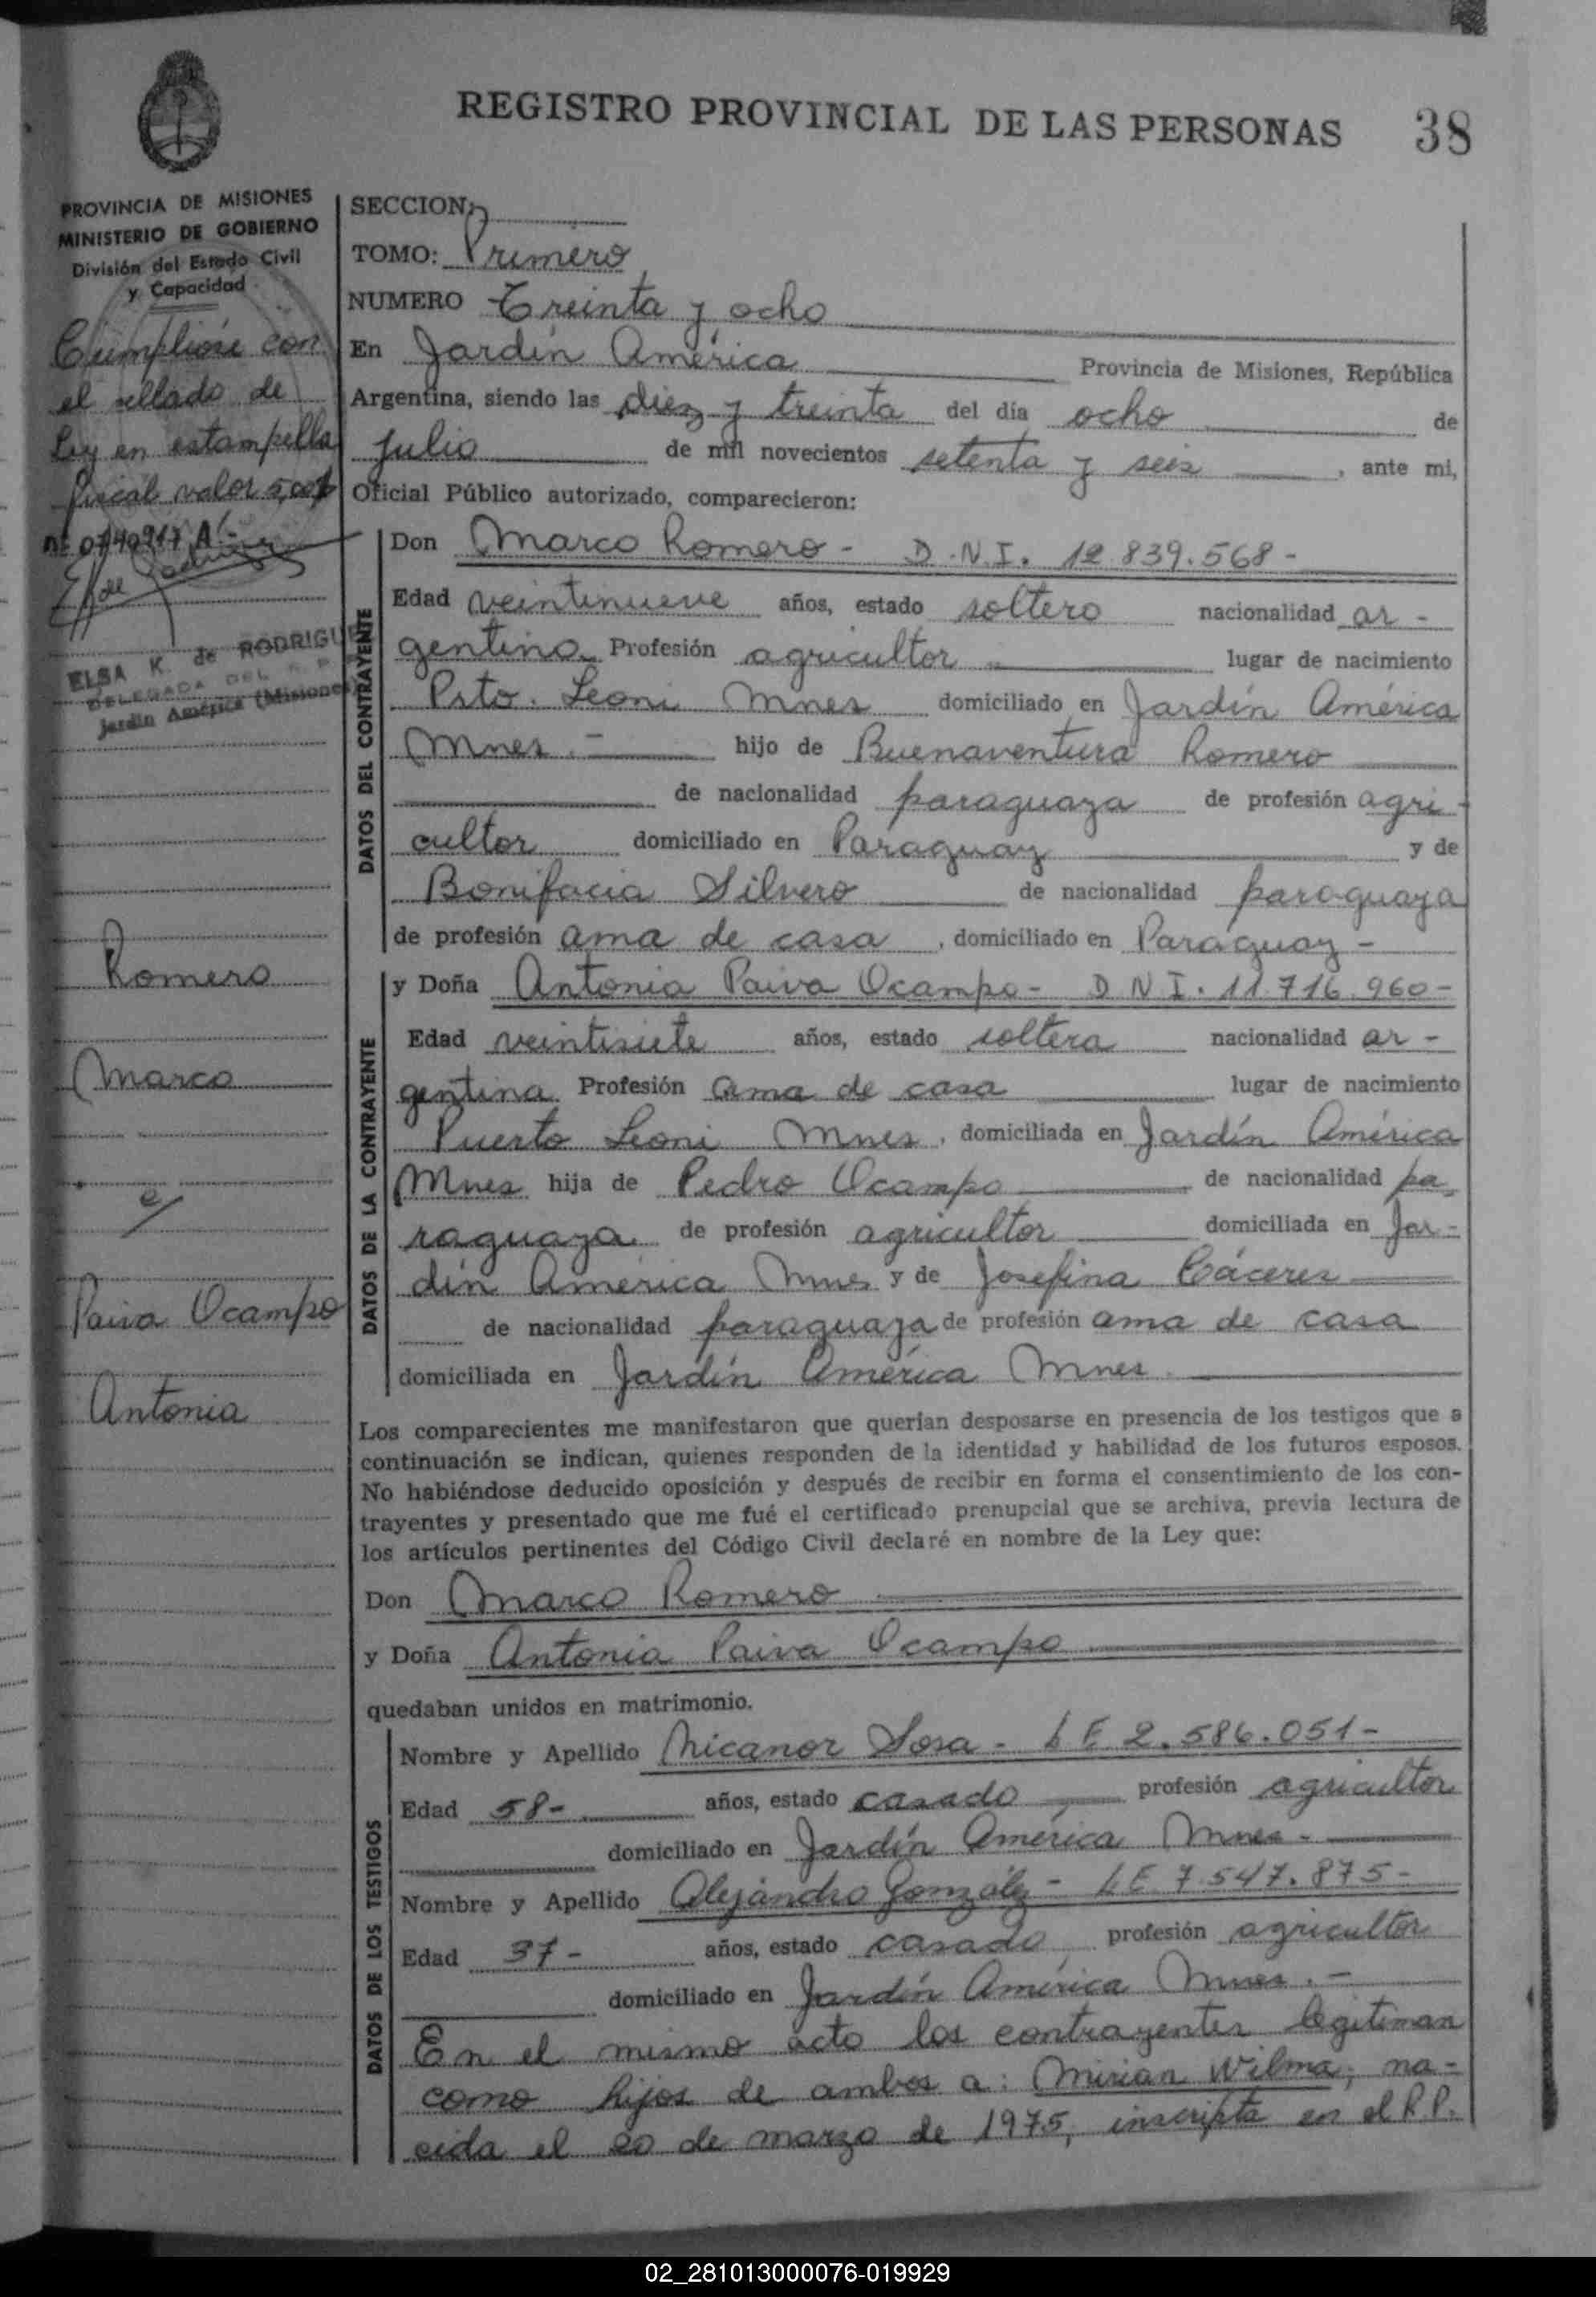 REGISTRO PROVINCIAL DE LAS PERSONAS 38
PROVINCIA DE MISIONES
MINISTERIO DE GOBIERNO
División del Estado Civil
y Capacidad
Cumplióse con
el sellado de
Ley en estampilla
fiscal valor 5,00$
nº 0740917 A
ELSA K. de RODRIGUE
DELEGADA DEL R. P.
Jardín América (Misiones)
Romero
Marco
c/
Paiva Ocampo
Antonia
SECCION:
TOMO: Primero
NUMERO Treinta y ocho
En Jardín América Provincia de Misiones, República
Argentina, siendo las diez y treinta del día ocho de
Julio de mil novecientos setenta y seis, ante mi,
Oficial Público autorizado, comparecieron:
DATOS DEL CONTRAYENTE
Don Marco Romero - D.N.I. 12.839.568-
Edad veintinueve años, estado soltero nacionalidad ar-
gentina. Profesión agricultor lugar de nacimiento
Pto. Leoni Mnes domiciliado en Jardín América
Mnes.- hijo de Buenaventura Romero
de nacionalidad paraguaya de profesión agri-
cultor domiciliado en Paraguay y de
Bonifacia Silvero de nacionalidad paraguaya
de profesión ama de casa, domiciliado en Paraguay -
DATOS DE LA CONTRAYENTE
y Doña Antonia Paiva Ocampo - D N I. 11.716.960-
Edad veintisiete años, estado soltera nacionalidad ar-
gentina. Profesión ama de casa lugar de nacimiento
Puerto Leoni Mnes, domiciliada en Jardín América
Mnes hija de Pedro Ocampo de nacionalidad pa-
raguaya de profesión agricultor domiciliada en Jar-
dín América Mnes y de Josefina Cáceres
de nacionalidad paraguaya de profesión ama de casa
domiciliada en Jardín América Mnes.
Los comparecientes me manifestaron que querían desposarse en presencia de los testigos que a
continuación se indican, quienes responden de la identidad y habilidad de los futuros esposos.
No habiéndose deducido oposición y después de recibir en forma el consentimiento de los con-
trayentes y presentado que me fué el certificado prenupcial que se archiva, previa lectura de
los artículos pertinentes del Código Civil declaré en nombre de la Ley que:
Don Marco Romero
y Doña Antonia Paiva Ocampo
quedaban unidos en matrimonio.
DATOS DE LOS TESTIGOS
Nombre y Apellido Nicanor Sosa - LE 2.586.051-
Edad 58- años, estado casado profesión agricultor
domiciliado en Jardín América Mnes-
Nombre y Apellido Alejandro González - LE 7.547.875-
Edad 37- años, estado casado profesión agricultor
domiciliado en Jardín América Mnes.-
En el mismo acto los contrayentes legitiman
como hijos de ambos a: Mirian Wilma, na-
cida el 20 de marzo de 1975, inscripta en el R.P.
02_281013000076-019929